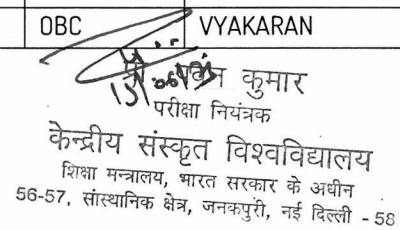 OBC VYAKARAN
कुमार
परीक्षा नियंत्रक
केन्द्रीय संस्कृत विश्वविद्यालय
शिक्षा मन्त्रालय, भारत सरकार के अधीन
56-57, सांस्थानिक क्षेत्र, जनकपुरी, नई दिल्ली - 58